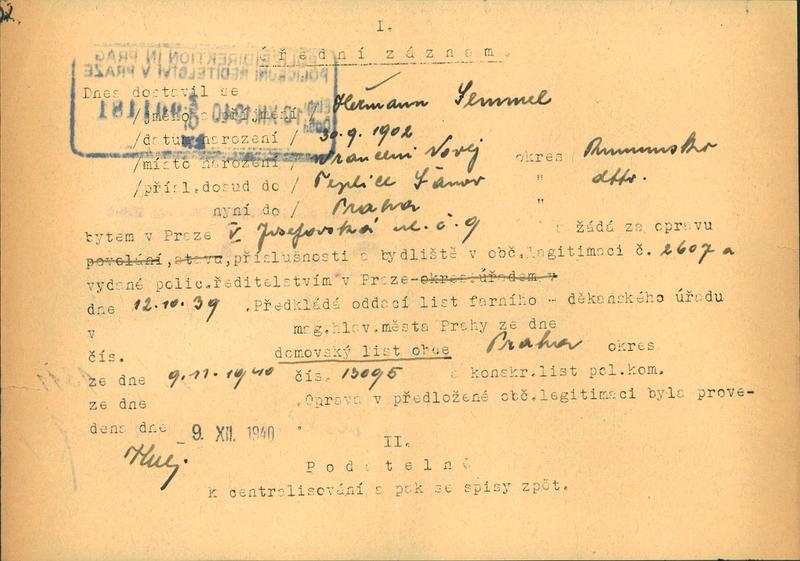 I.
Úřední záznam.
POLIZEIDIREKTION IN PRAG
POLICEJNÍ ŘEDITELSTVÍ V PRAZE
10.XII.1940
Dnes dostavil se
/jméno a příjmení / Heřmann Semmel
/datum narození / 30.9.1902
/místo narození / Novej okres / Rumunsko
/přísl.dosud do / Teplice Šanov " dtto.
nyní do / Praha "
bytem v Praze V Josefovská ul. č. 9 a žádá za opravu
povolání,stavu,příslušnosti a bydliště v obč.legitimaci č. 2607 a
vydané polic.ředitelstvím v Praze-okres.úřadem v
dne 12.10.39 .Předkládá oddací list farního - děkanského úřadu
v mag.hlav.města Prahy ze dne
čís. domovský list obce Praha okres
ze dne 9.11.1940 čís. 13095 a konskr.list pol.kom.
ze dne .Oprava v předložené obč.legitimaci byla prove-
dena dne 9. XII. 1940
II.
Podatelně
k centralisování a pak se spisy zpět.